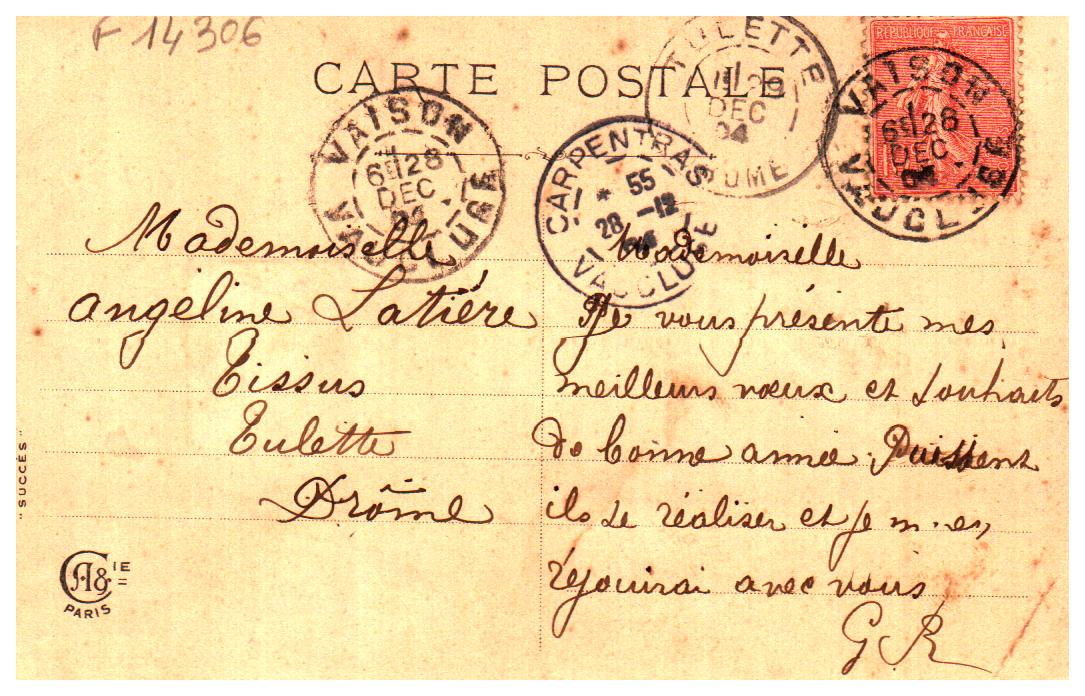 F 14306
CARTE POSTALE
RÉPUBLIQUE FRANÇAISE
TULETTE
28
DEC
04
VAISON
6E 28
DEC
VAUCLUSE
VAISON
6E 28
DEC.
04
VAUCLUSE
CARPENTRAS
* 55
28 -12
VAUCLUSE
Mademoiselle
angéline Latière
Tissus
Tulette
Drôme
Mademoiselle
Je vous présente mes
meilleurs vœux et souhaits
de bonne année. Puissent
ils se réaliser et je m'en
réjouirai avec vous
G R
"SUCCÈS"
CA & CIE
PARIS